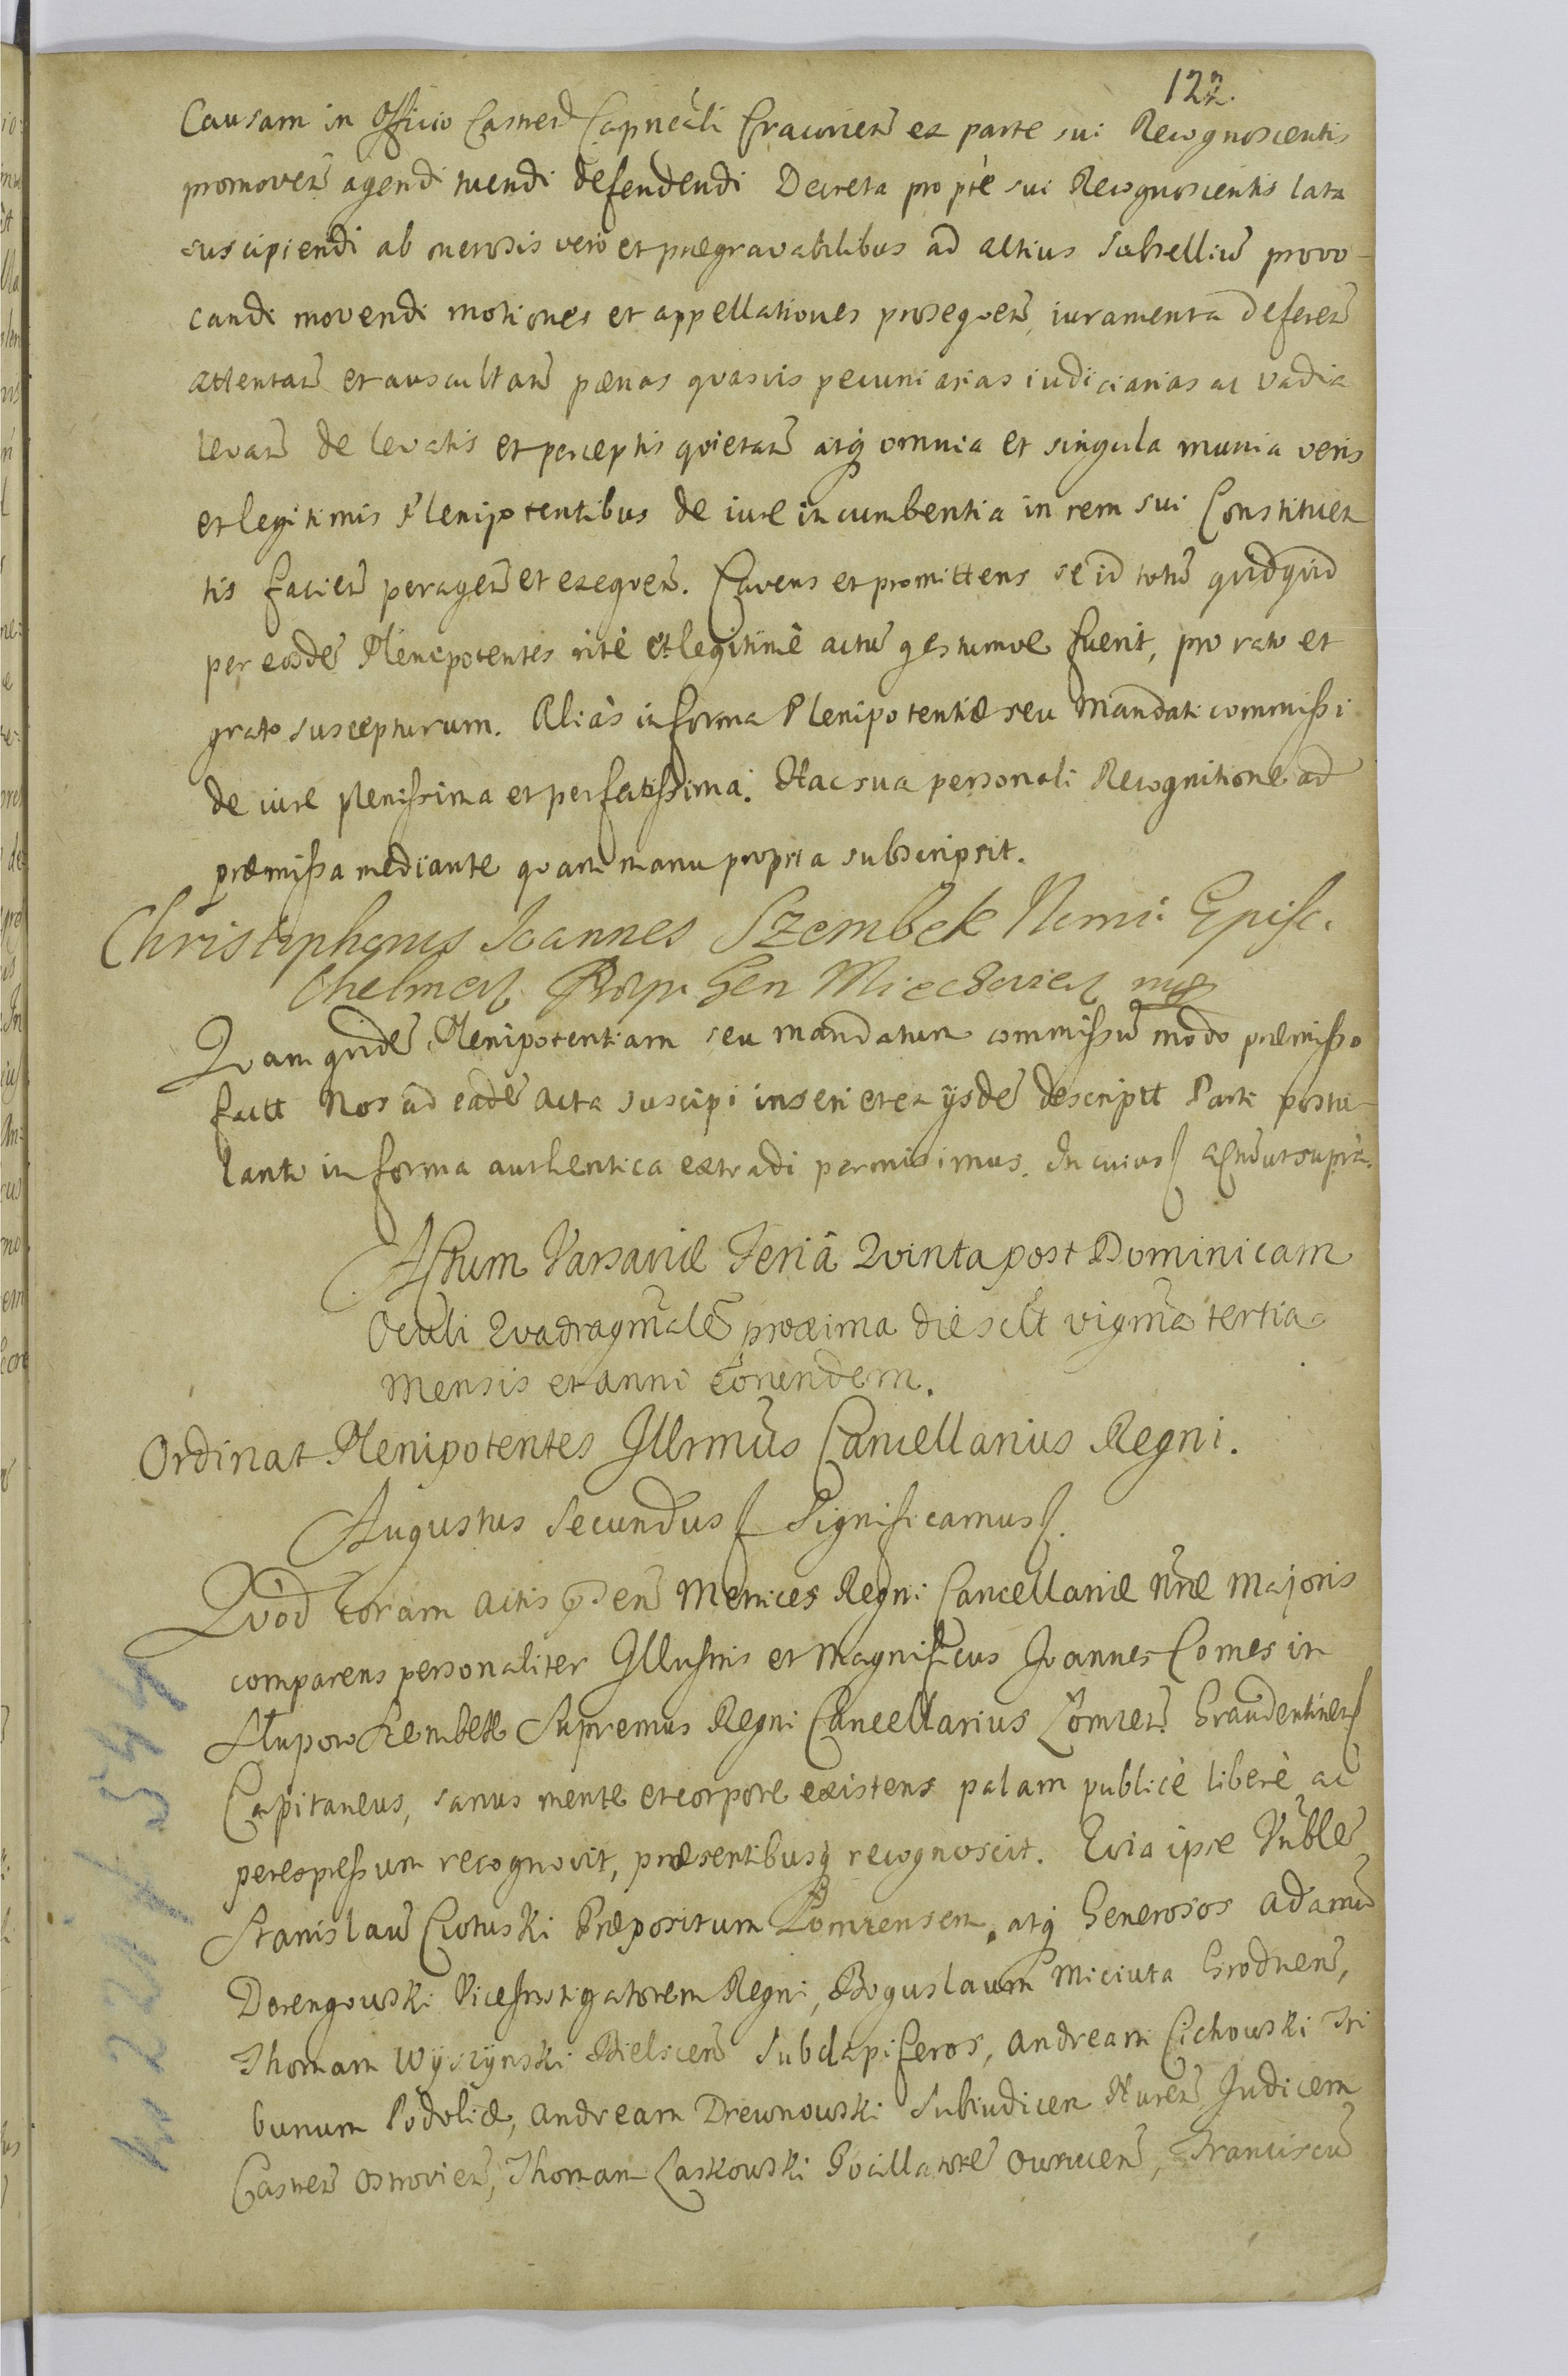 122.
Causam in Officio Castreñ Capneali Cracovieñ ex parte sui Recognoscentis
promoveñ agendi tuendi defendendi Decreta pro pte sui Recognoscentis lata
suscipiendi ab onerosis vero et prægravabilibus ad altius Subselliũ provo-
candi movendi motiones et appellationes prosequeñ, iuramenta defereñ
attentañ et auscultañ pænas quasvis pecuniarias iudiciarias ac vadia
levañ de levatis et perceptis quietañ atq omnia et singula munia veris
et legitimis Plenipotentibus de iure incumbentia in rem sui Constituen
tis facieñ perageñ et exequeñ. Cavens et promittens se id totũ quidquid
per eosdẽ Plenipotentes ritè et legitimè actũ gestumve fuerit, pro rato et
grato suscepturum. Aliàs in forma Plenipotentiæ seu Mandati commissi
de iure plenissima et perfectissima. Hac sua personali Recognitione ad
præmissa mediante quam manu propria subscripsit.
Christophorus Joannes Szembek Nomi: Episc.
Chelmeñ Præp. Gen Miechovieñ mp
Quam quidẽ Plenipotentiam seu mandatum commissũ modo præmisso
factt Nos ad eadẽ Acta suscipi inseri et ex ijsdẽ descriptt Parti postu-
lanti in forma authentica extradi permisimus. In cuius Actũ ut supra.
Actum Varsaviæ Feriâ Quinta post Dominicam
Oculi Quadragmalẽ proxima die sclt vigmã tertia
Mensis et anni eorundem.
Ordinat Plenipotentes Illrmũs Cancellarius Regni.
Augustus Secundus Significamus.
Quod coram Actis pñ Metrices Regni Cancellariæ Nræ Majoris
comparens personaliter Illustris et Magnificus Joannes Comes in
Słupow Szembek Supremus Regni Cancellarius Łomzeñ Graudentineñ
Capitaneus, sanus mente et corpore existens palam publicè liberè ac
per expressum recognovit, præsentibusq recognoscit. Quia ipse Vnblẽ
Stanislaũ Præpositum Łomzensem, atq Generosos Adamũ
Derengowski Viceinstigatorem Regni, Boguslaum Miciuta Grodneñ,
Thomam Wyszynski Bielsceñ Subdapiferos, Andream Cichowski Tri
bunum Podoliæ, Andream Drewnowski Subiudicem Nureñ Judicem
Castreñ Ostrovieñ, Thomam Laskowski Pocillatorẽ Owruceñ, Franciscũ